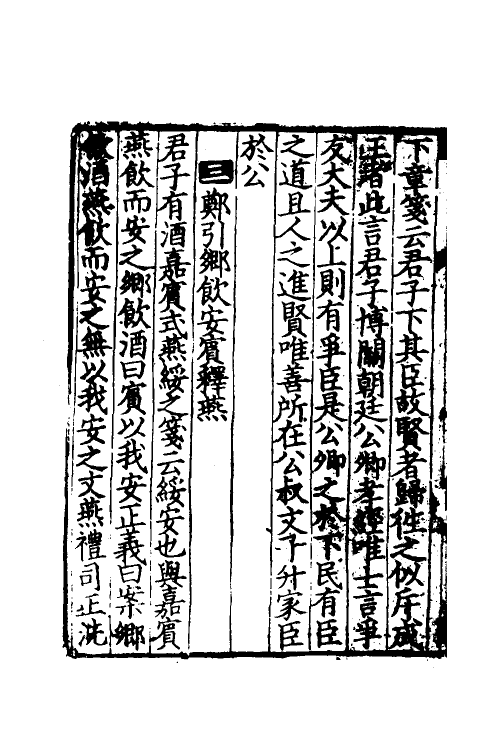 下章箋云君子下其臣故賢者歸往之似斥成
王諸此言君子博關朝廷公卿孝經唯士言爭
友大夫以上則有爭臣是公卿之於下民有臣
之道且人之進賢唯善所在公叔文子升家臣
於公
三鄭引鄉飲安賓釋燕
君子有酒嘉賓式燕綏之箋云綏安也與嘉賓
燕飲而安之鄉飲酒曰賓以我安正義曰案鄉
飲酒燕飲而安之無以我安之文燕禮司正洗